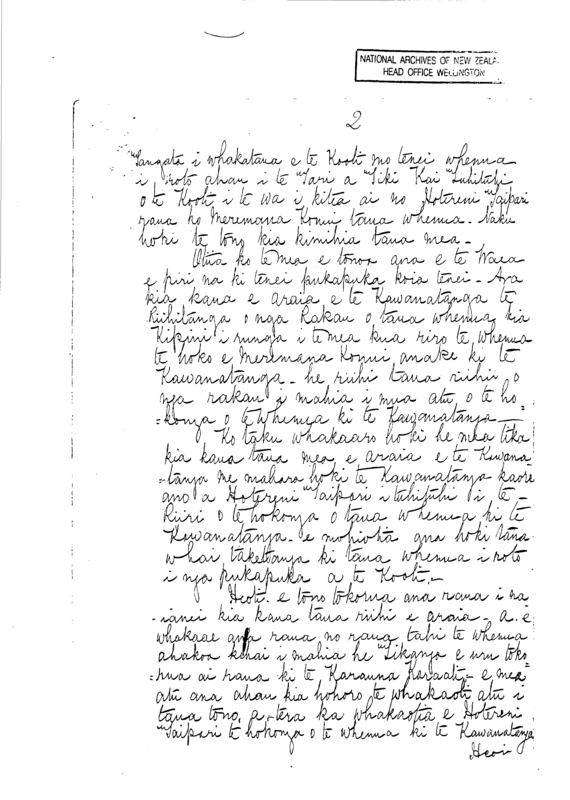 NATIONAL ARCHIVES OF NEW ZEALA
HEAD OFFICE WELLINGTON
2
Tangata i whakataua e te Kooti mo tenei whenua
i roto ahau i te Tari a Tiki Kai Tuhituhi
o te Kooti i te wa i kitea ai no Hotereni Taipari
raua ko Meremana Konui taua whenua. Naku
hoki te tono kia kimihia taua mea -
Otira ko te mea e tonoa ana e te Waea
e piri na ki tenei pukapuka koia tenei - Ara
kia kaua e araia e te Kawanatanga te
Riihitanga o nga Rakau o taua whenua kia
i runga i te mea kua riro te whenua
te hoko e Meremana Konui anake ki te
Kawanatanga - he riihi taua riihi o
nga rakau i mahia i mua atu o te ho
=konga o te whenua ki te Kawanatanga -
Ko taku whakaaro hoki he mea tika
kia kaua taua mea e araia e te Kawana
=tanga me mahara hoki te Kawanatanga kaore
ano a Hotereni Taipari i tuhituhi i te -
Riiri o te hokonga o taua whenua ki te
Kawanatanga. e mohiotia ana hoki tana
whai taketanga ki taua whenua i roto
i nga pukapuka a te Kooti. -
Heoti. e tono tokorua ana raua i na
-ianei kia kaua taua riihi e araia - a. e
whakaae ana raua no raua tahi te whenua
ahakoa kihai i mahia he Tikanga e uru toko
=rua ai raua ki te Karauna Karaati - e mea
atu ana ahau kia hohoro te whakaoti atu i
taua tono, a, tera ka whakaotia e Hotereni
Taipari te hokonga o te whenua ki te Kawanatanga
Heoi